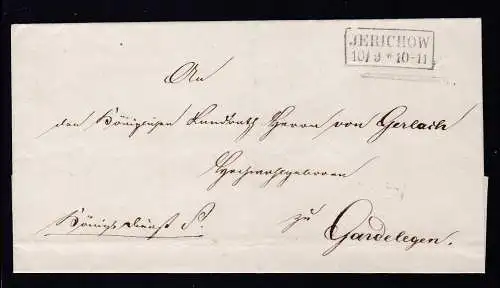 JERICHOW
10/9 * 10-11
An
den Königlichen Landrath Herrn von Gerlach
Hochwohlgeboren
zu
Gardelegen.
Königl. Dienst S.